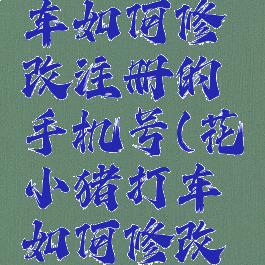 车如何修
改注册的
手机号(花
小猪打车
如何修改